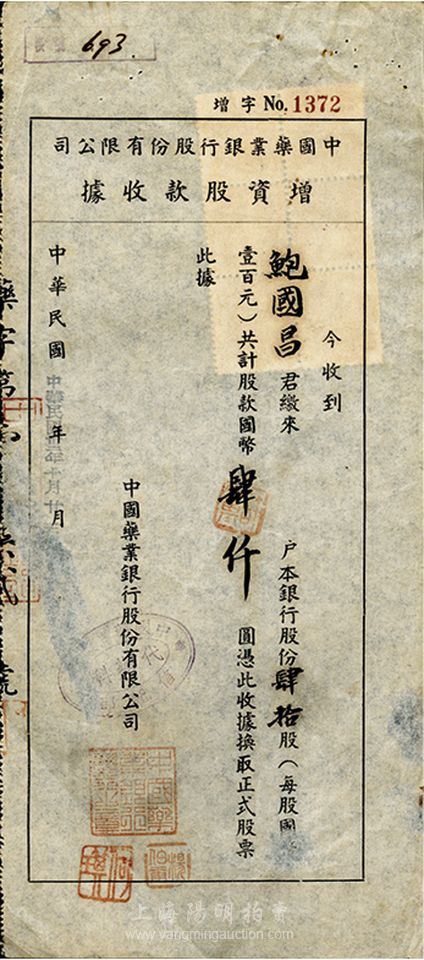 693
增字 No. 1372
中國藥業銀行股份有限公司
增資股款收據
今收到
鮑國昌君繳來
戶本銀行股份肆拾股（每股國
壹百元）共計股款國幣肆仟圓憑此收據換取正式股票
此據
中國藥業銀行股份有限公司
中華民國 年 月
藥字第
上海陽明拍賣
www.yangmingauction.com